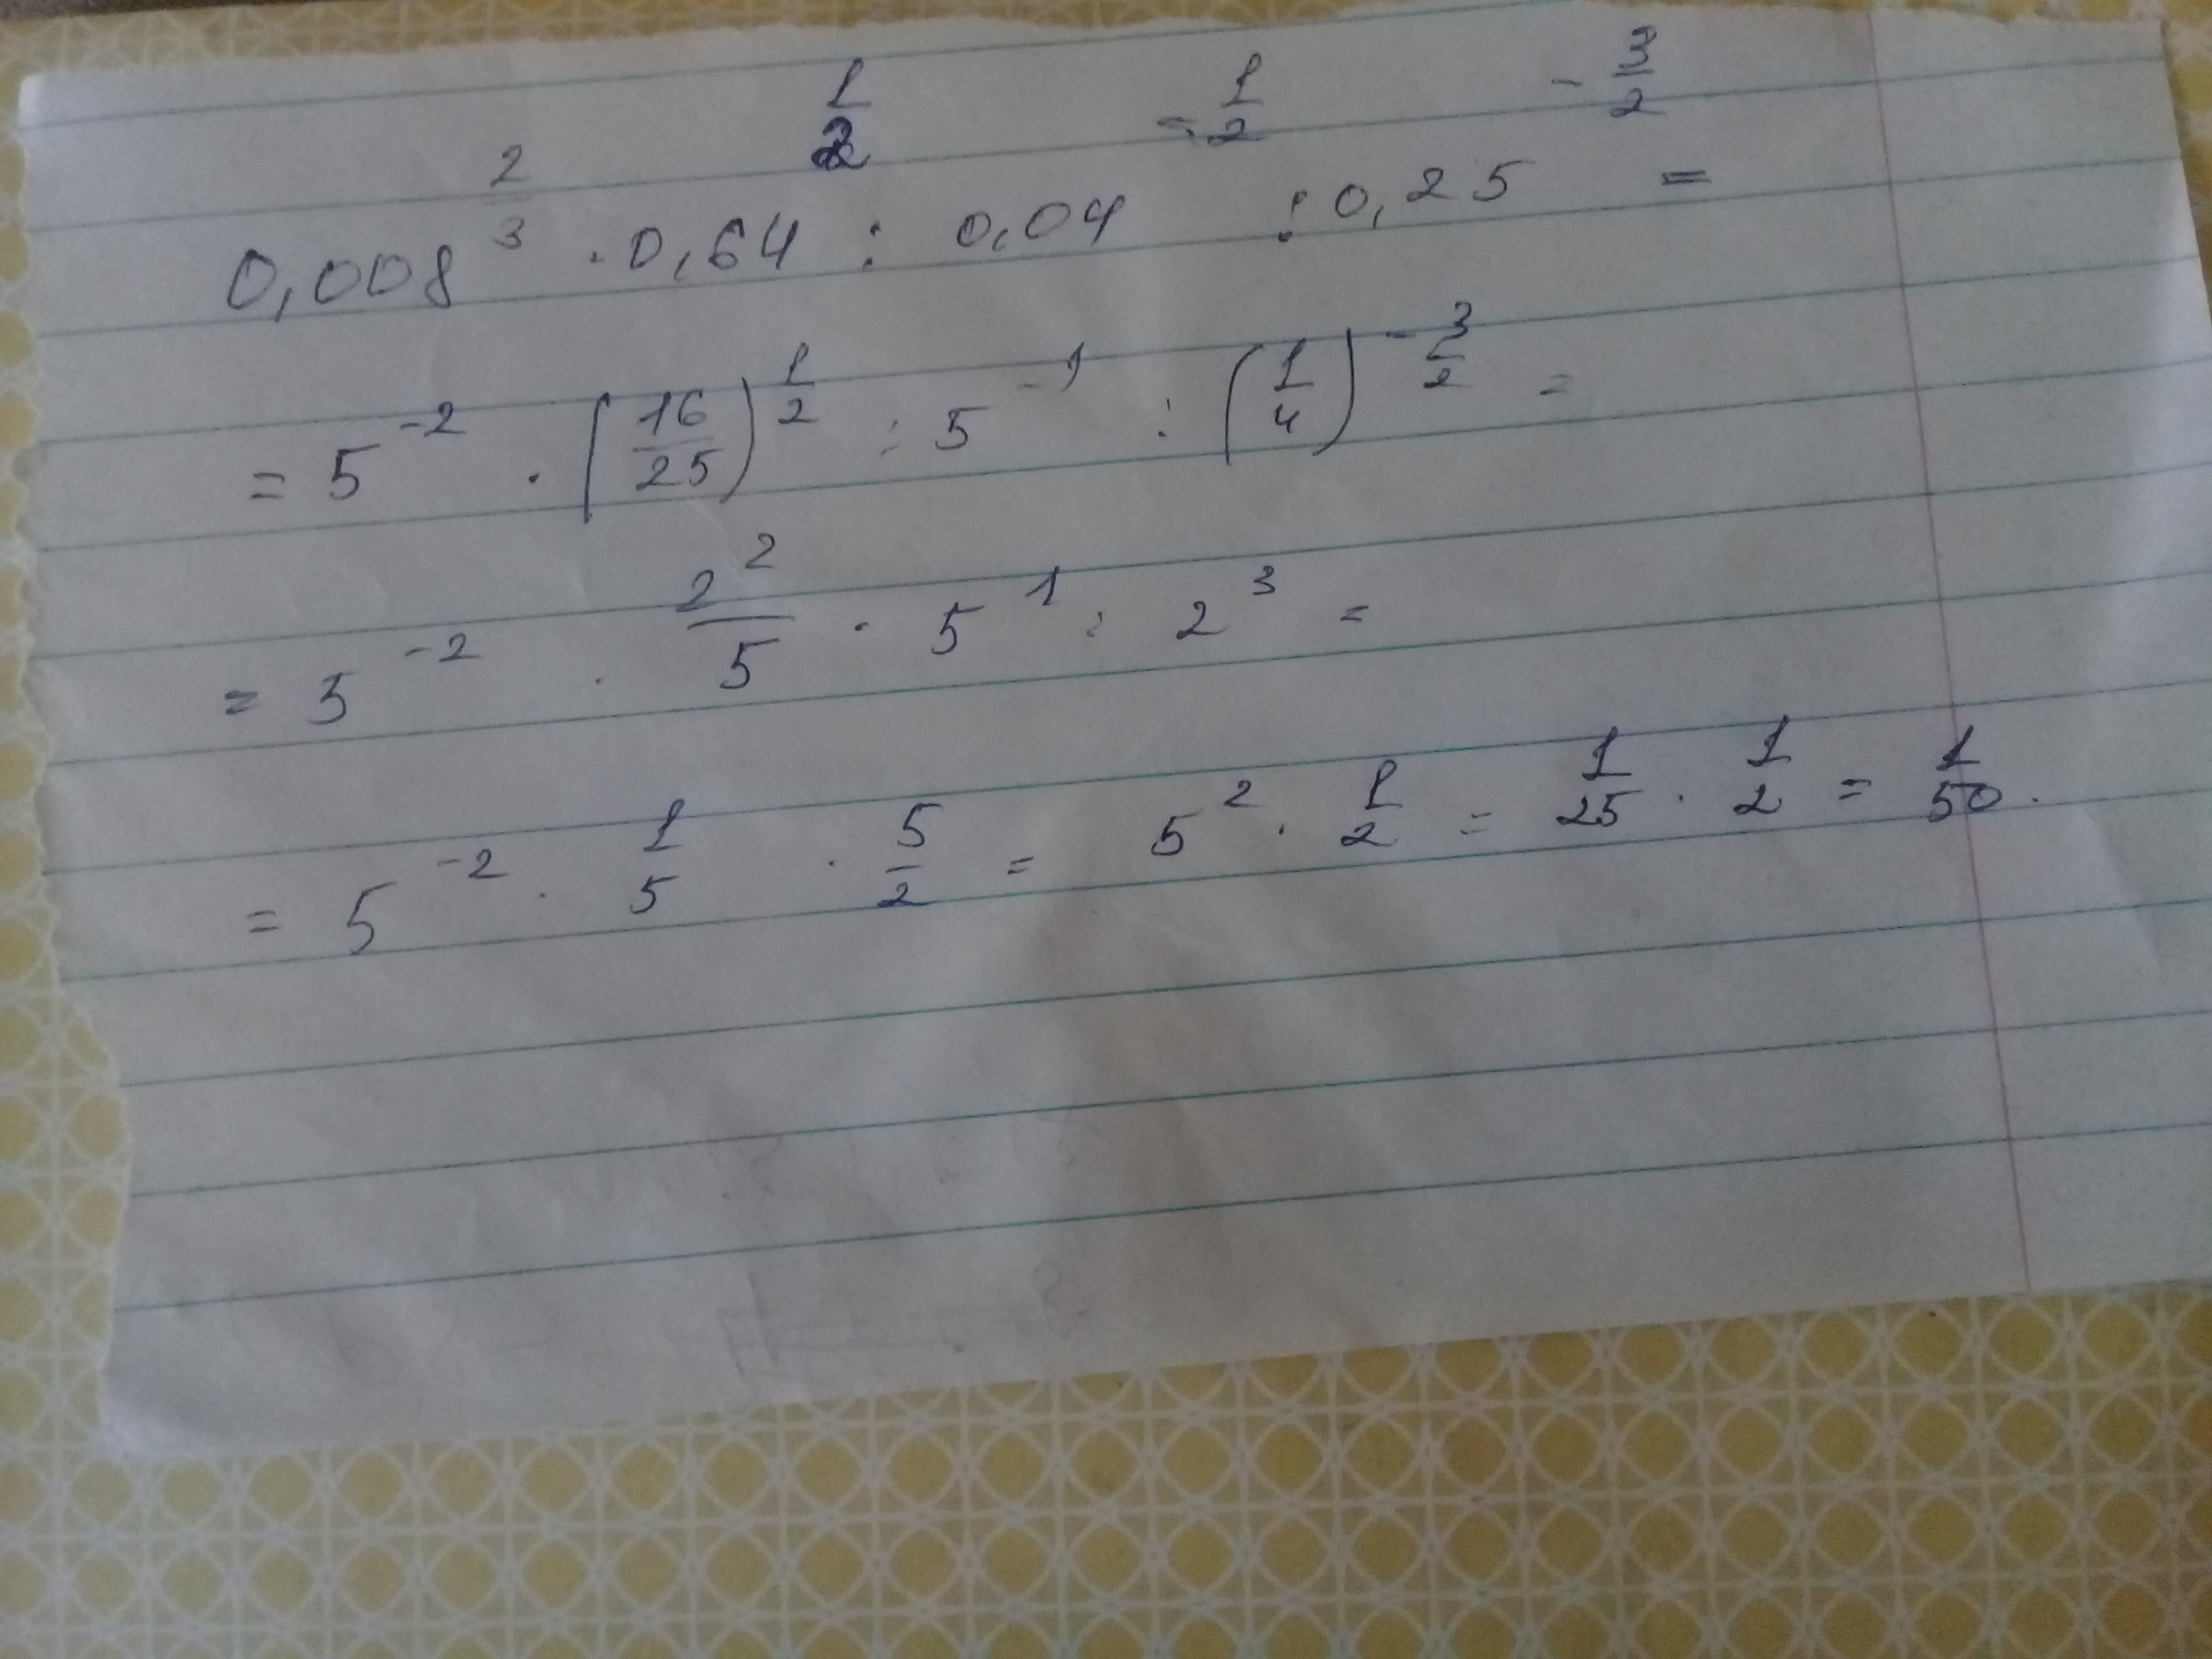 0,008^(2/3) · 0,64^(1/2) : 0,04^(-1/2) : 0,25^(-3/2) =
= 5^(-2) · (16/25)^(1/2) : 5^(-1) : (1/4)^(-3/2) =
= 5^(-2) · 2^2/5 · 5^1 : 2^3 =
= 5^(-2) · 1/5 · 5/2 = 5^2 · 1/2 = 1/25 · 1/2 = 1/50.